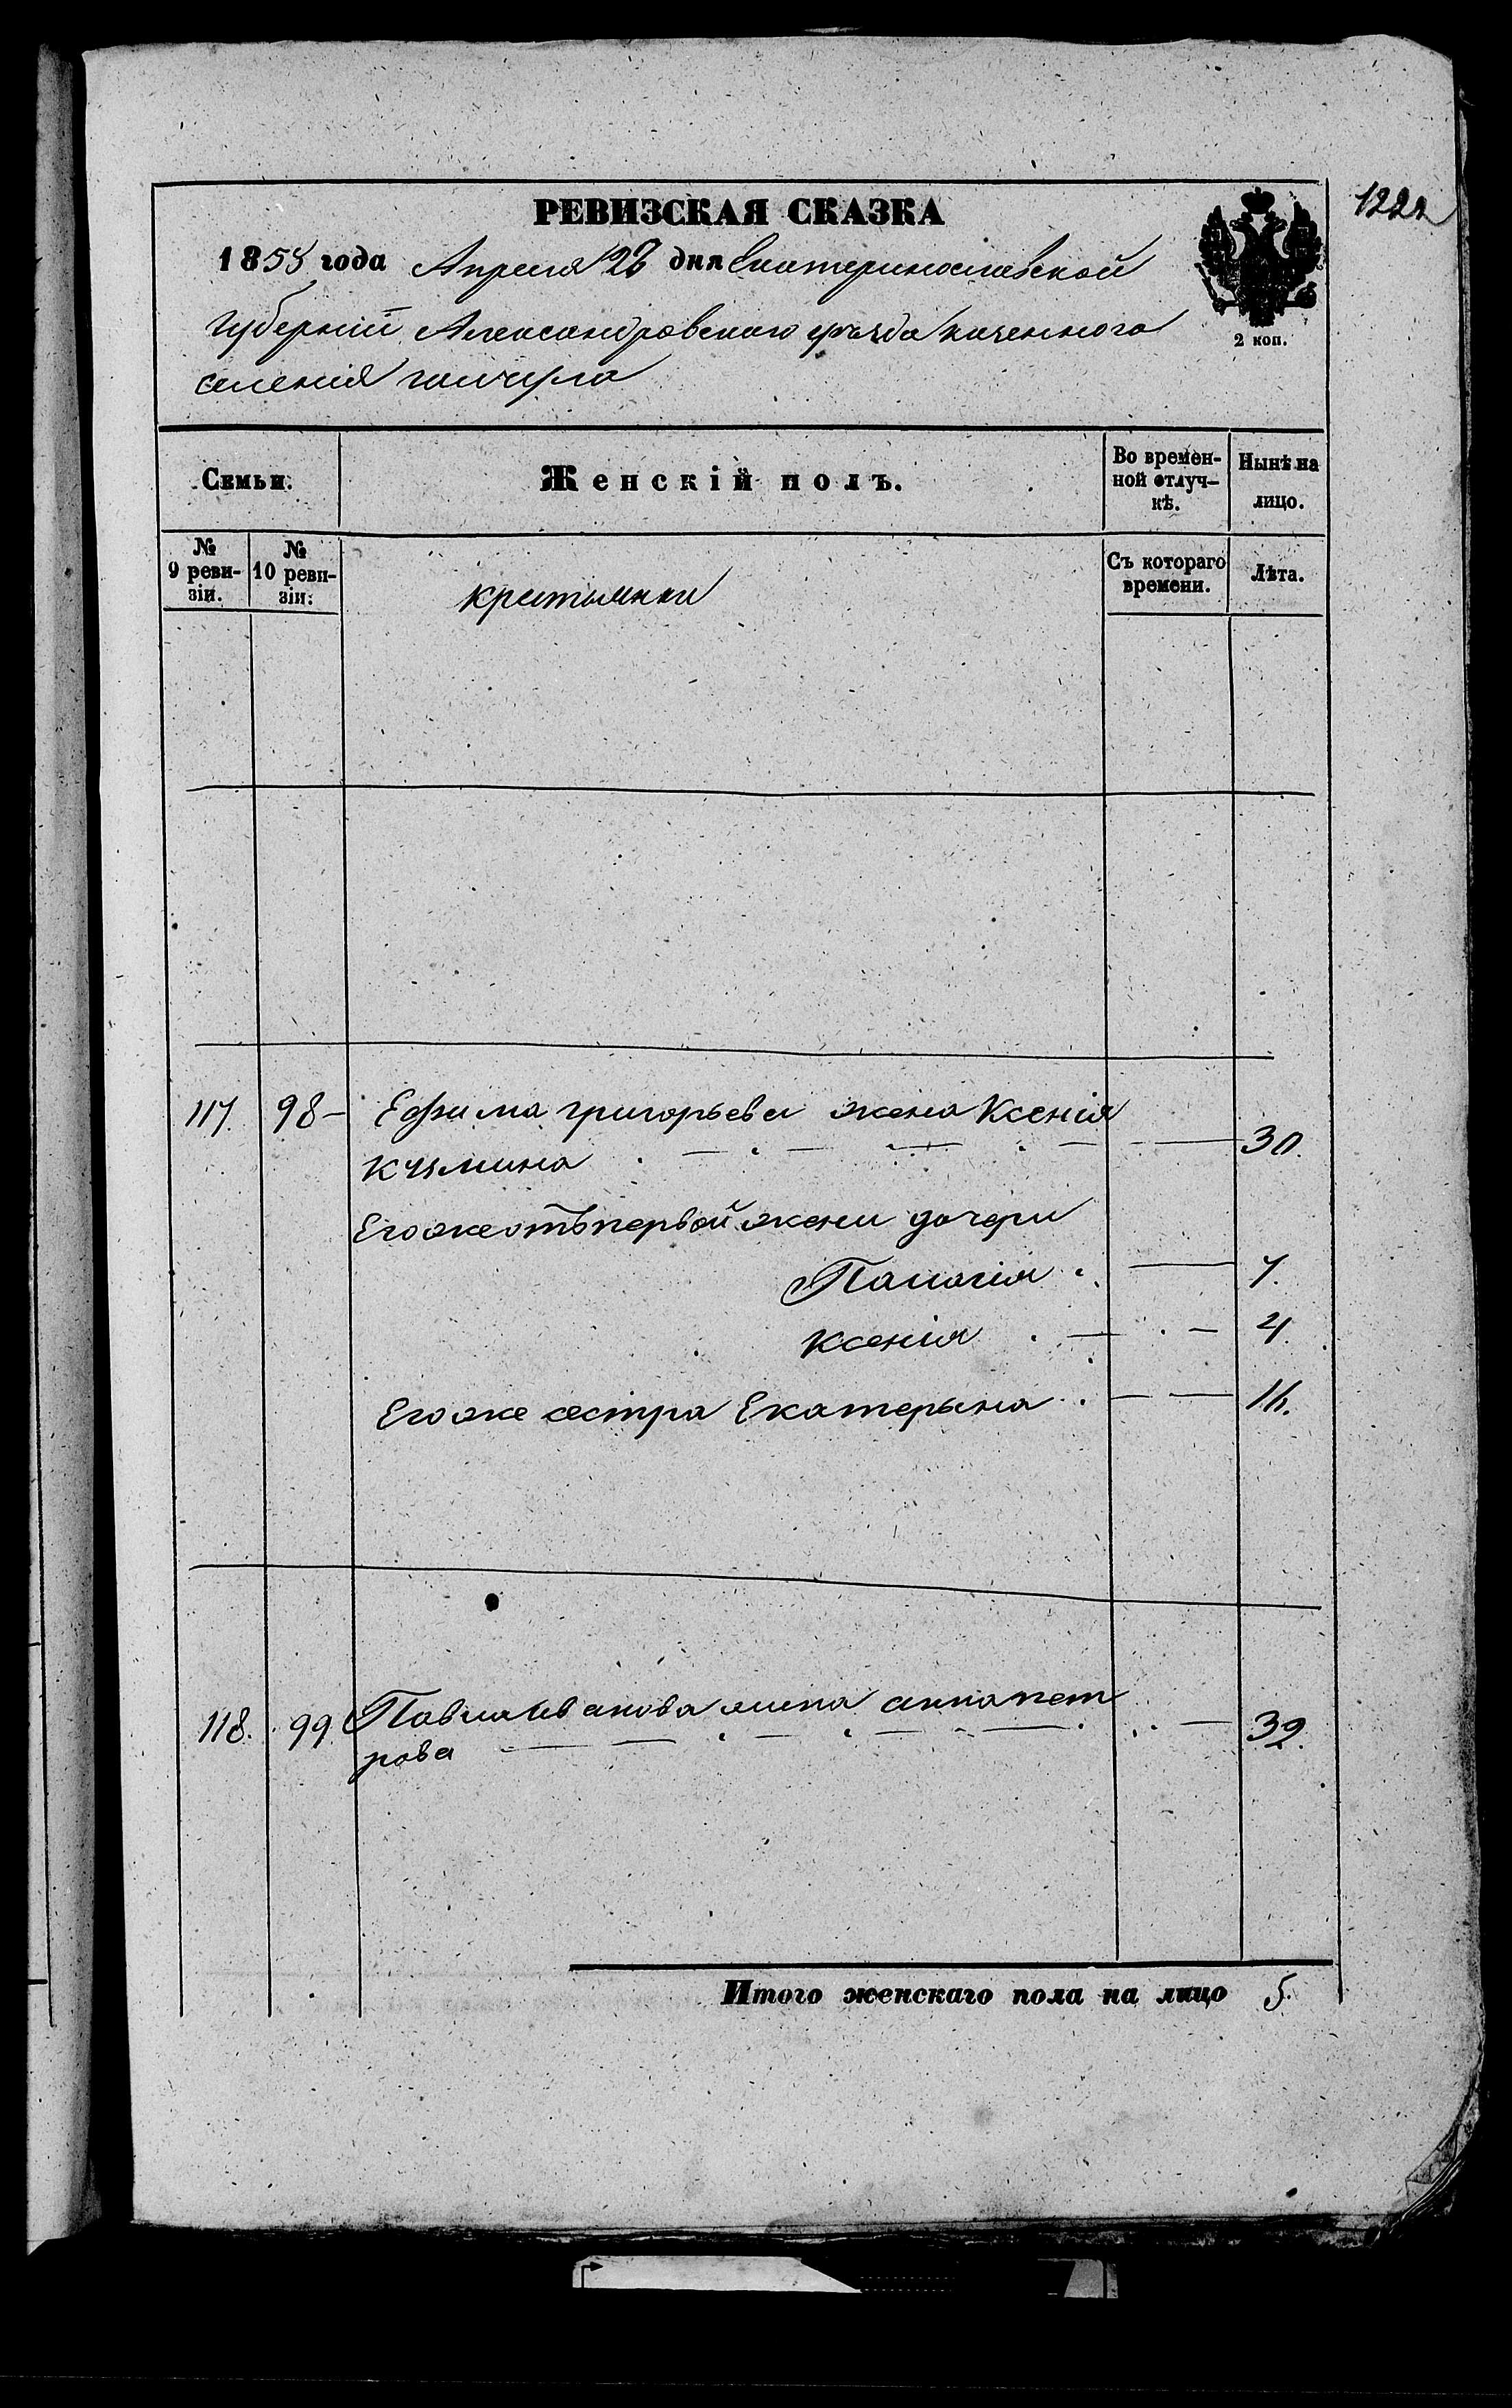 1222
РЕВИЗСКАЯ СКАЗКА
1858 года Апреля 28 дня Екатеринославской
Губерніи Александровскаго уѣзда казенного
селенія гайчула
2 коп.
Семьи. Женскій полъ. Во времен-ной отлуч-кѣ. Нынѣ на лицо.
№ 9 реви-зіи. № 10 реви-зіи. крестьянки Съ котораго времени. Лѣта.
117. 98 – Ефима григорьева жена Ксенія
Кузмина 30.
Его же отъ первой жени дочери
Палагія 7.
Ксенія 4.
Его же сестра Екатерына 16.
118. 99. Павла Иванова жена анна пет
рова 39.
Итого женскаго пола на лицо 5.